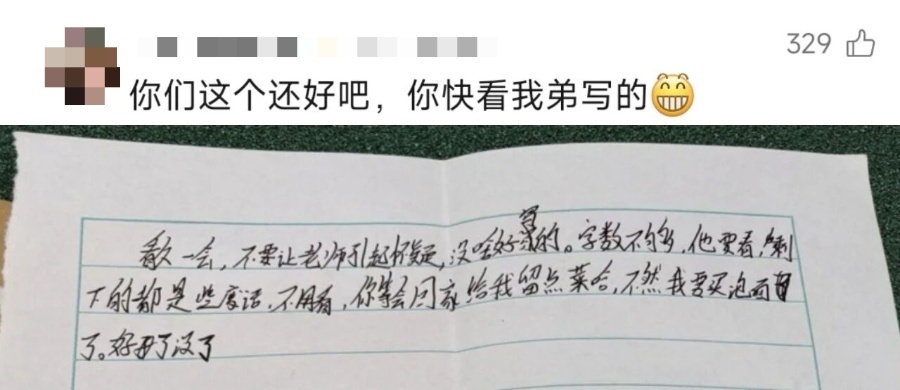 329
你们这个还好吧，你快看我弟写的😁
写
看久一会，不要让老师引起怀疑，没啥好写的。字数不够，他要看，剩
下的都是些废话，不用看，你等会回家给我留点菜哈，不然我要买泡面
了。好了没了